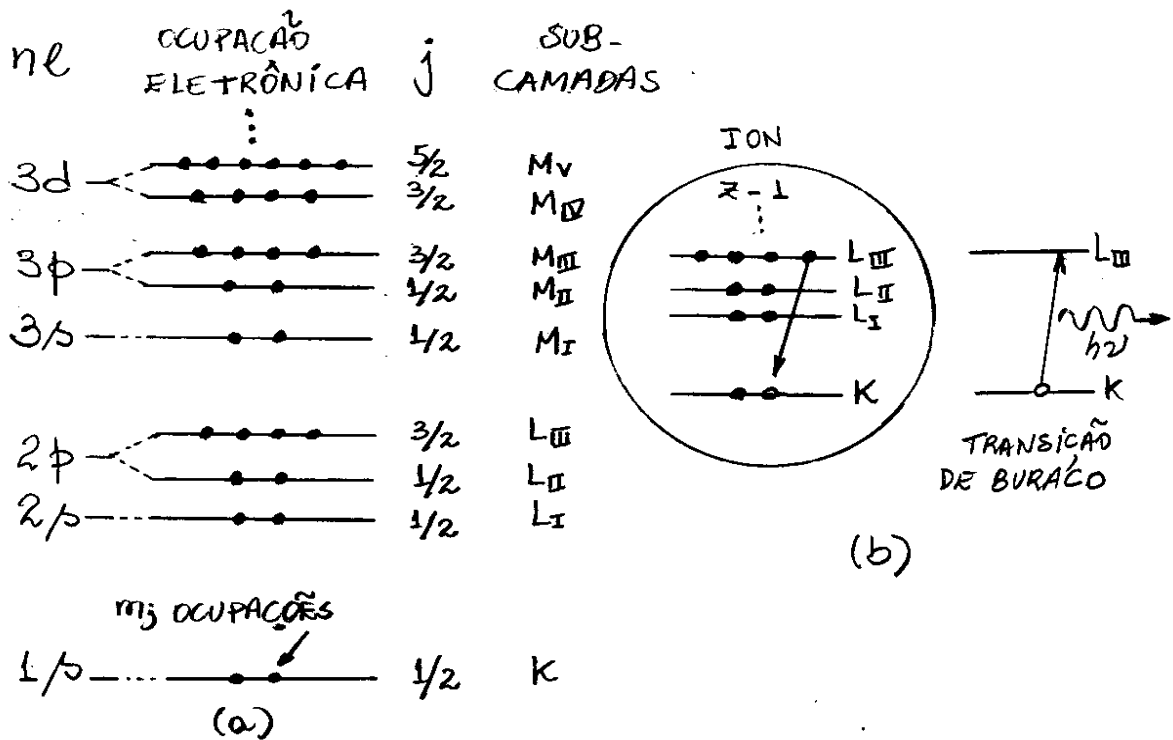 nl OCUPAÇÃO ELETRÔNICA j SUB-CAMADAS
3d 5/2 M_V
3/2 M_IV
3p 3/2 M_III
1/2 M_II
3s 1/2 M_I
2p 3/2 L_III
1/2 L_II
2s 1/2 L_I
m_j OCUPAÇÕES
1s 1/2 K
(a)
ION
Z-1
L_III
L_II
L_I
K
L_III
hν
K
TRANSIÇÃO
DE BURACO
(b)